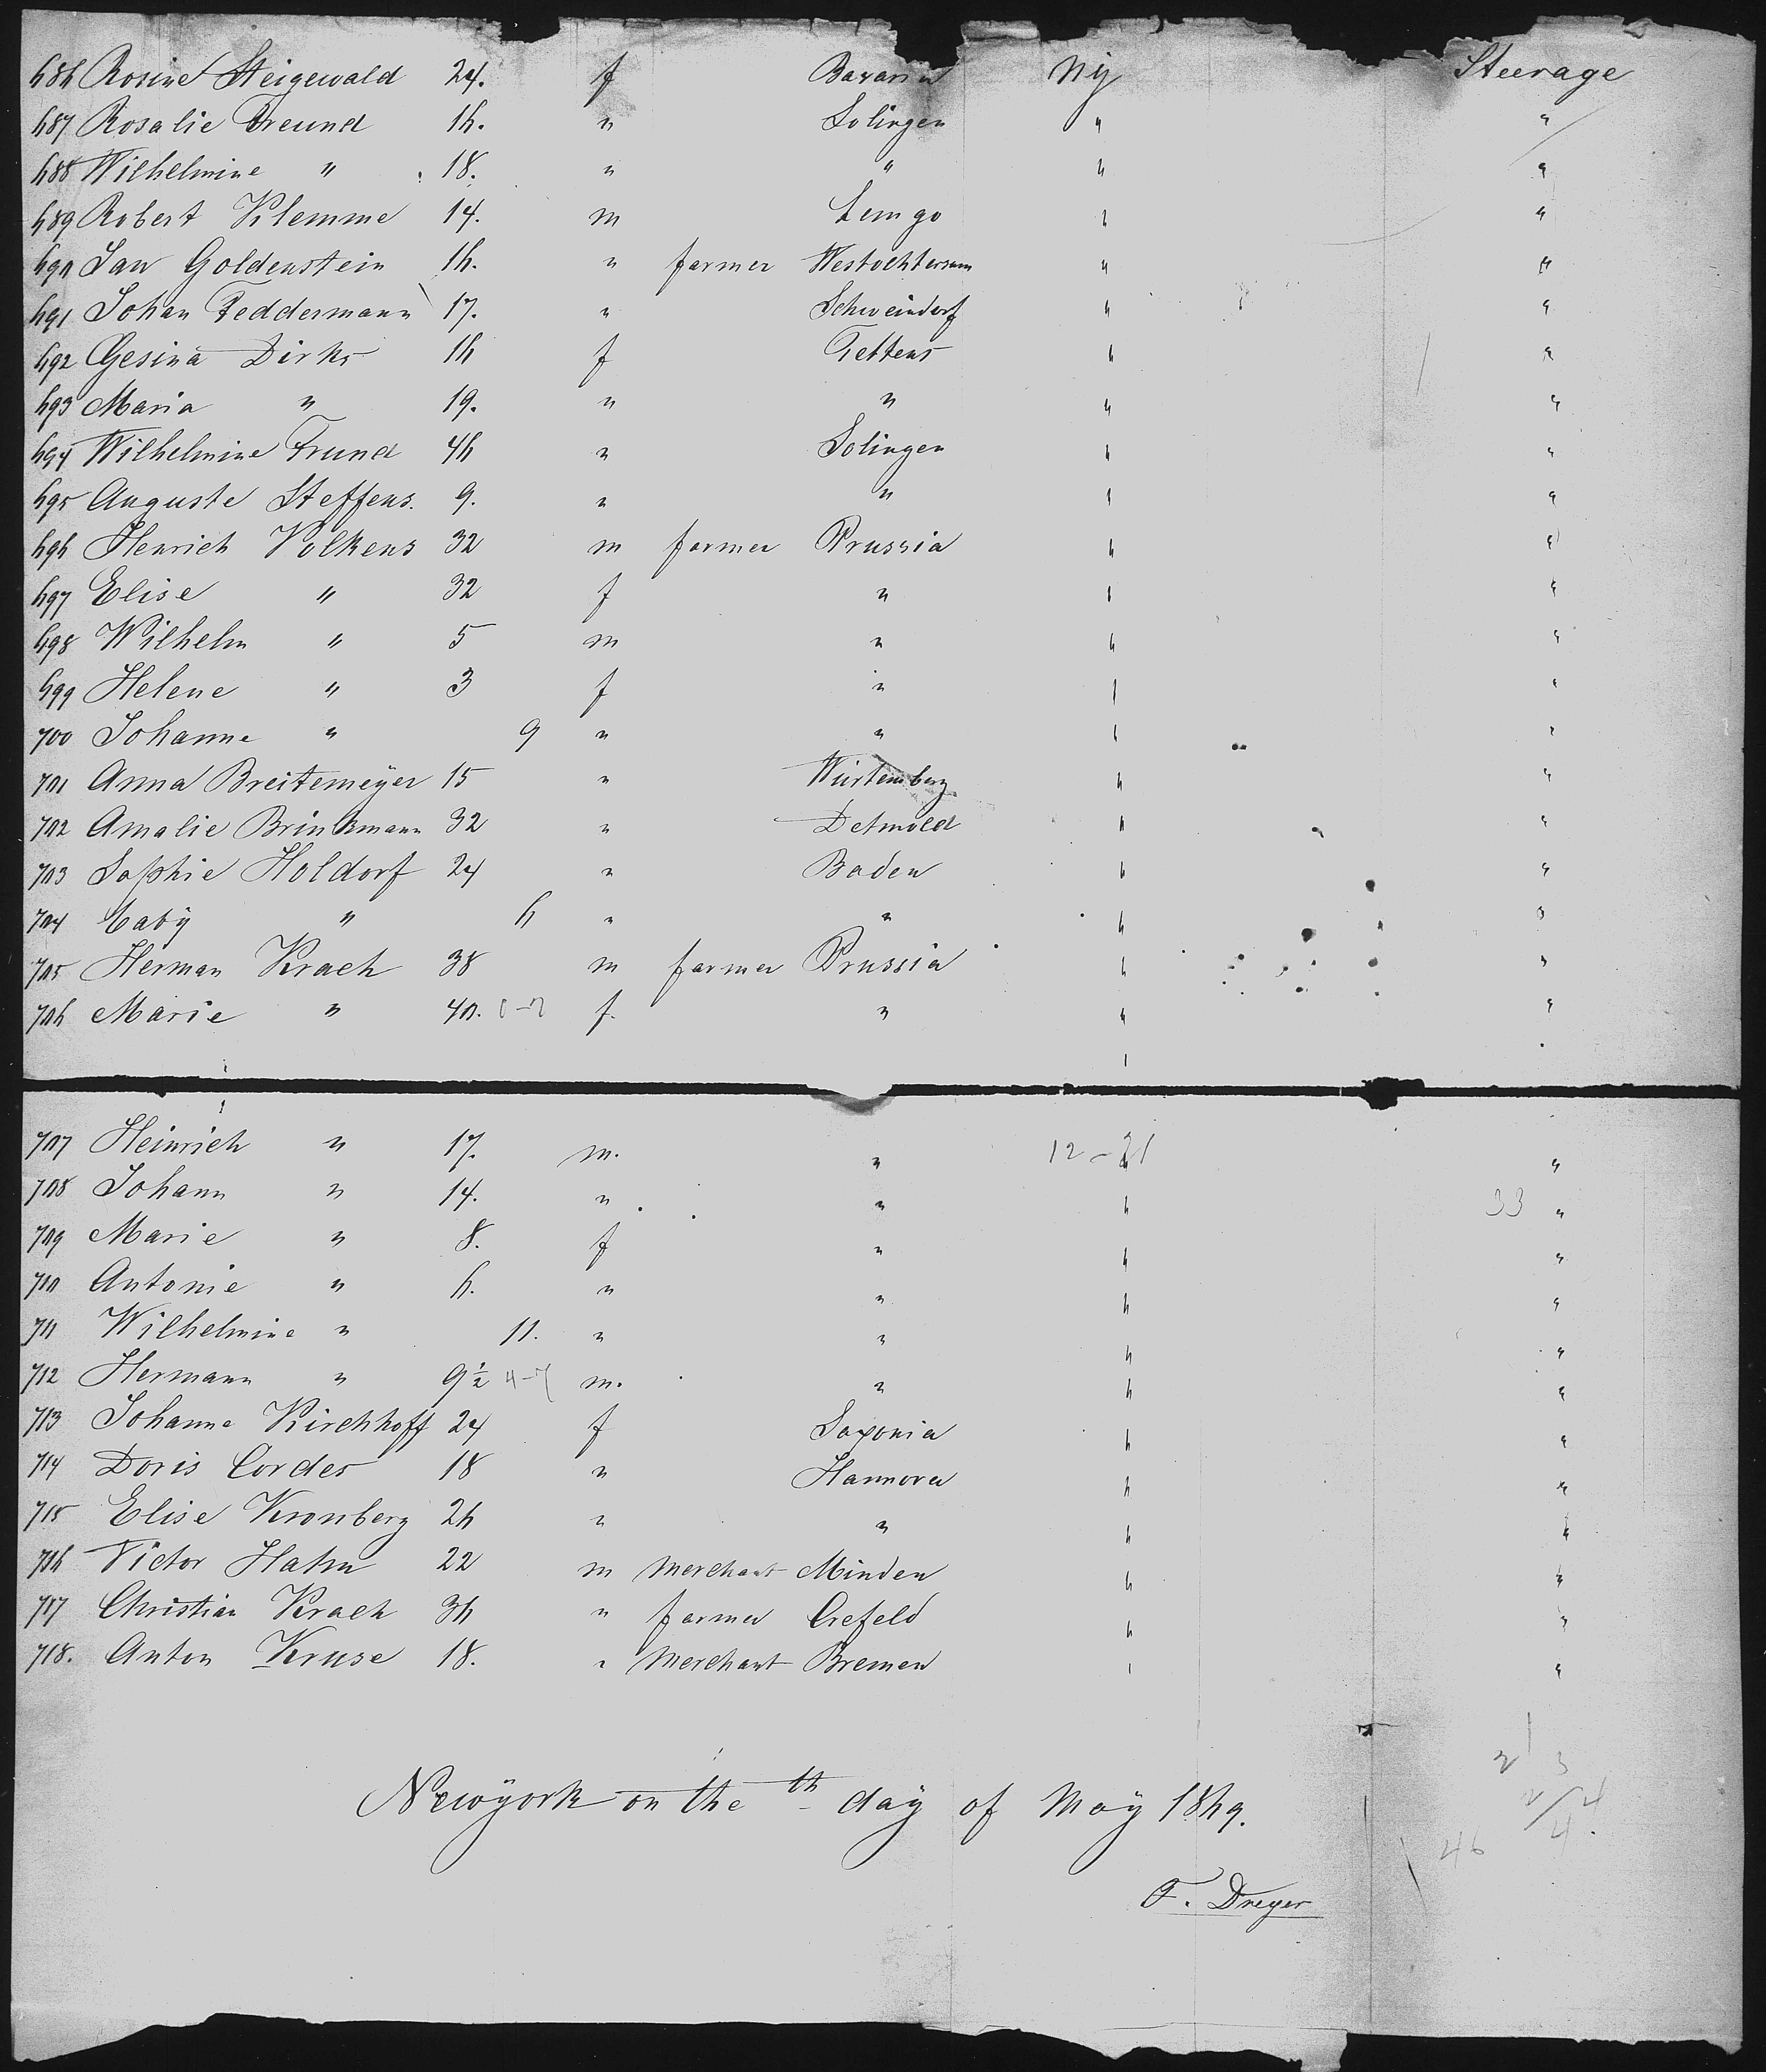 686 Rosine Steigewald 24. f Bavaria Ny Steerage
687 Rosalie Freund 16. " Solingen " "
688 Wilhelmine " 18. " " " "
689 Robert Klemme 14. m Lemgo " "
690 Jan Goldenstein 16. " farmer Westochtersum " "
691 Johan Feddermann 17. " Schweindorf " "
692 Gesina Dirks 16 f Tettens " "
693 Maria " 19. " " " "
694 Wilhelmine Frund 46 " Solingen " "
695 Auguste Steffens. 9. " " " "
696 Henrich Volkens 32 m farmer Prussia " "
697 Elise " 32 f " " "
698 Wilhelm " 5 m " " "
699 Helene " 3 f " " "
700 Johanne " 9 " " " "
701 Anna Breitemeÿer 15 " Würtemberg " "
702 Amalie Brinkmann 32 " Detmold " "
703 Sophie Holdorf 24 " Baden " "
704 baby " 6 " " " "
705 Herman Krach 38 m farmer Prussia " "
706 Marie " 40. f. " " "
707 Heinrich " 17. m. " 12-21 " "
708 Johann " 14. " " " 33 "
709 Marie " 8. f " " "
710 Antonie " 6. " " " "
711 Wilhelmine " 11. " " " "
712 Hermann " 9½ 4-7 m. " " "
713 Johanne Kirchhoff 24 f Saxonia " "
714 Doris Cordes 18 " Hannover " "
715 Elise Kronberg 26 " " " "
716 Victor Hahn 22 m Merchant Minden " "
717 Christian Krach 36 " farmer Crefeld " "
718. Anton Kruse 18. " Merchant Bremen " "
Newÿork on the th day of Maÿ 1869.
46
F. Dreyer